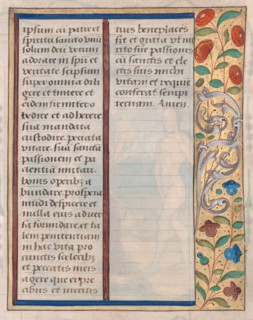 ipsum cu patre et
spiritu sancto vnu
solum deu verum
adorare in spū et
veritate se ipsum
super omnia dili
gere et timere et
eidem firmiter o
bedire et adherere
sua mandata
custodire peccata
vitare sua sancta
passionem et pa
tientia imitari
bonis operibz a
bundare prospera
mūdi despicere et
nulla eius aduer
sa formidare et ta
lem penitentiam
in hac vita pro
cunctis sceleribz
et peccatis meis
agere que et pre
cibus et meritis
tuis beneplaces
sit et grata vt me
rito sue passionis
cū sanctis et ele
ctis suis michi
vitam et requie
conferat sempi
ternam Amen